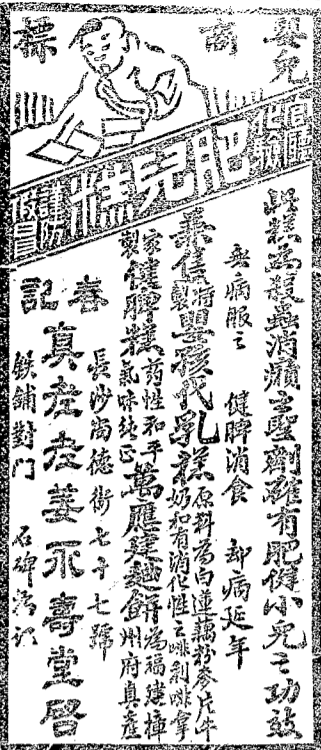 嬰兒商標
官廳化驗
肥兒糕
謹防假冒
此糕為殺蟲消癪之聖劑確有肥健小兒之功效
無病服之 健脾消食 却病延年
兼售特製嬰孩代乳糕原料為白蓮藕粉參片牛奶和有消化性之啡利啡拿
家製健脾糕藥性和平氣味純正萬應建越餅為福建樟州府真產
長沙尚德街七十七號
春記
真老老姜永壽堂啓
鉄鋪對門 石碑為記